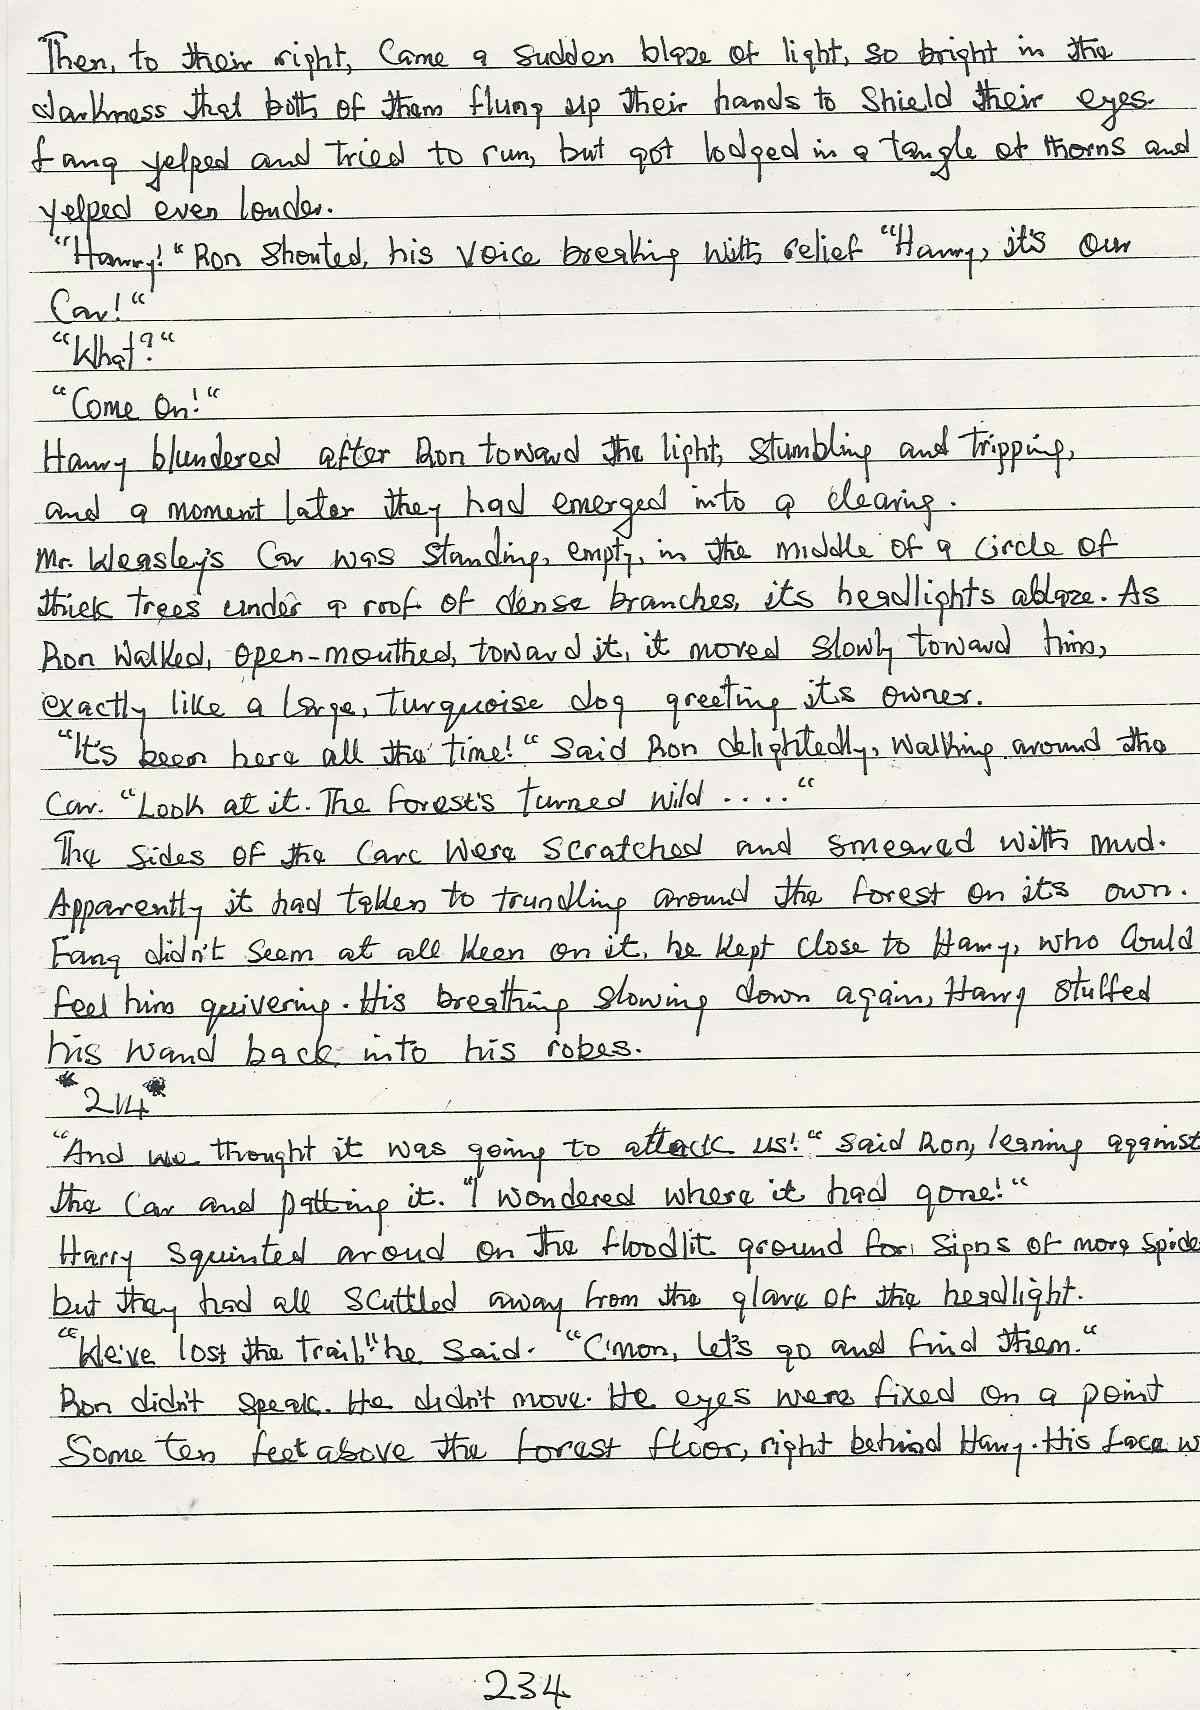 Then, to their right, Came a sudden blaze of light, so bright in the
darkness that both of them flung up their hands to shield their eyes.
fang yelped and tried to run, but got lodged in a tangle of thorns and
yelped even louder.
"Harry!" Ron shouted, his voice breaking with relief "Harry, it's our
Car!"
"What?"
"Come on!"
Harry blundered after Ron toward the light, stumbling and tripping,
and a moment later they had emerged into a clearing.
Mr. Weasley's Car was standing, empty, in the middle of a circle of
thick trees under a roof of dense branches, its headlights ablaze. As
Ron walked, open-mouthed, toward it, it moved slowly toward him,
exactly like a large, turquoise dog greeting its owner.
"It's been here all the time!" said Ron delightedly, walking around the
Car. "Look at it. The forest's turned wild...."
The sides of the Care were scratched and smeared with mud.
Apparently it had taken to trundling around the forest on its own.
Fang didn't seem at all keen on it, he kept close to Harry, who Could
feel him quivering. His breathing slowing down again, Harry stuffed
his wand back into his robes.
*214*
"And we thought it was going to attack us!" said Ron, leaning against
the Car and patting it. "I wondered where it had gone!"
Harry squinted aroud on the floodlit ground for signs of more spide
but they had all scuttled away from the glare of the headlight.
"We've lost the trail," he said. "C'mon, let's go and find them."
Ron didn't speak. He didn't move. He eyes were fixed on a point
Some ten feet above the forest floor, right behind Harry. His face w
234